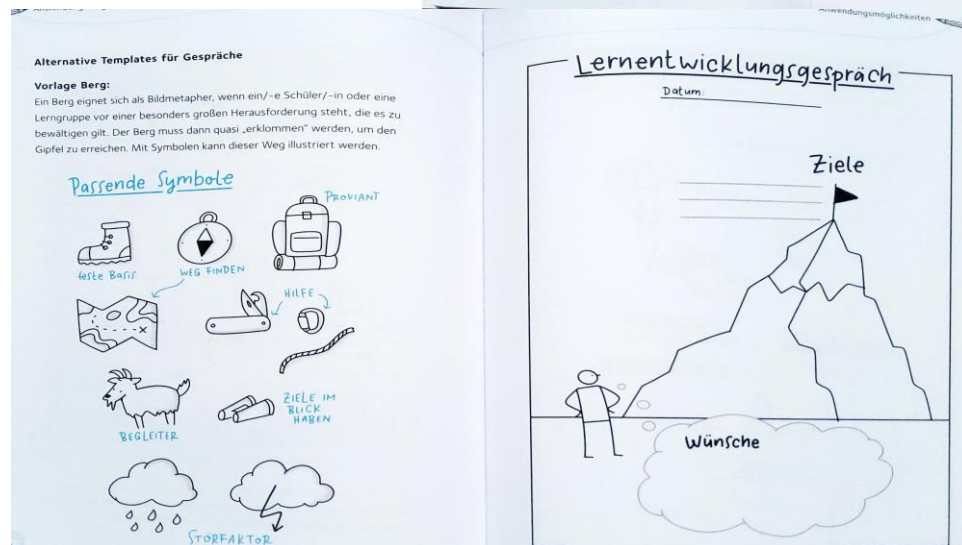 Anwendungsmöglichkeiten
Alternative Templates für Gespräche
Vorlage Berg:
Ein Berg eignet sich als Bildmetapher, wenn ein/-e Schüler/-in oder eine
Lerngruppe vor einer besonders großen Herausforderung steht, die es zu
bewältigen gilt. Der Berg muss dann quasi „erklommen" werden, um den
Gipfel zu erreichen. Mit Symbolen kann dieser Weg illustriert werden.
Passende Symbole
PROVIANT
feste Basis
WEG FINDEN
HILFE
BEGLEITER
ZIELE IM
BLICK
HABEN
STÖRFAKTOR
Lernentwicklungsgespräch
Datum:
Ziele
Wünsche